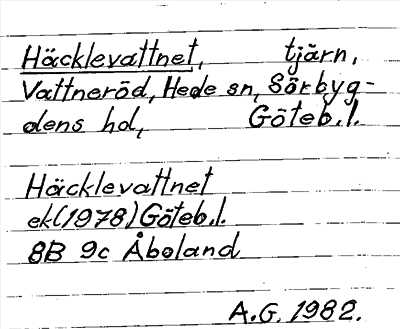 Häcklevattnet, tjärn,
Vattneröd, Hede sn, Sörbyg-
dens hd, Göteb.l.
Häcklevattnet
ek(1978) Göteb.l.
8B 9c Åboland
A.G. 1982.